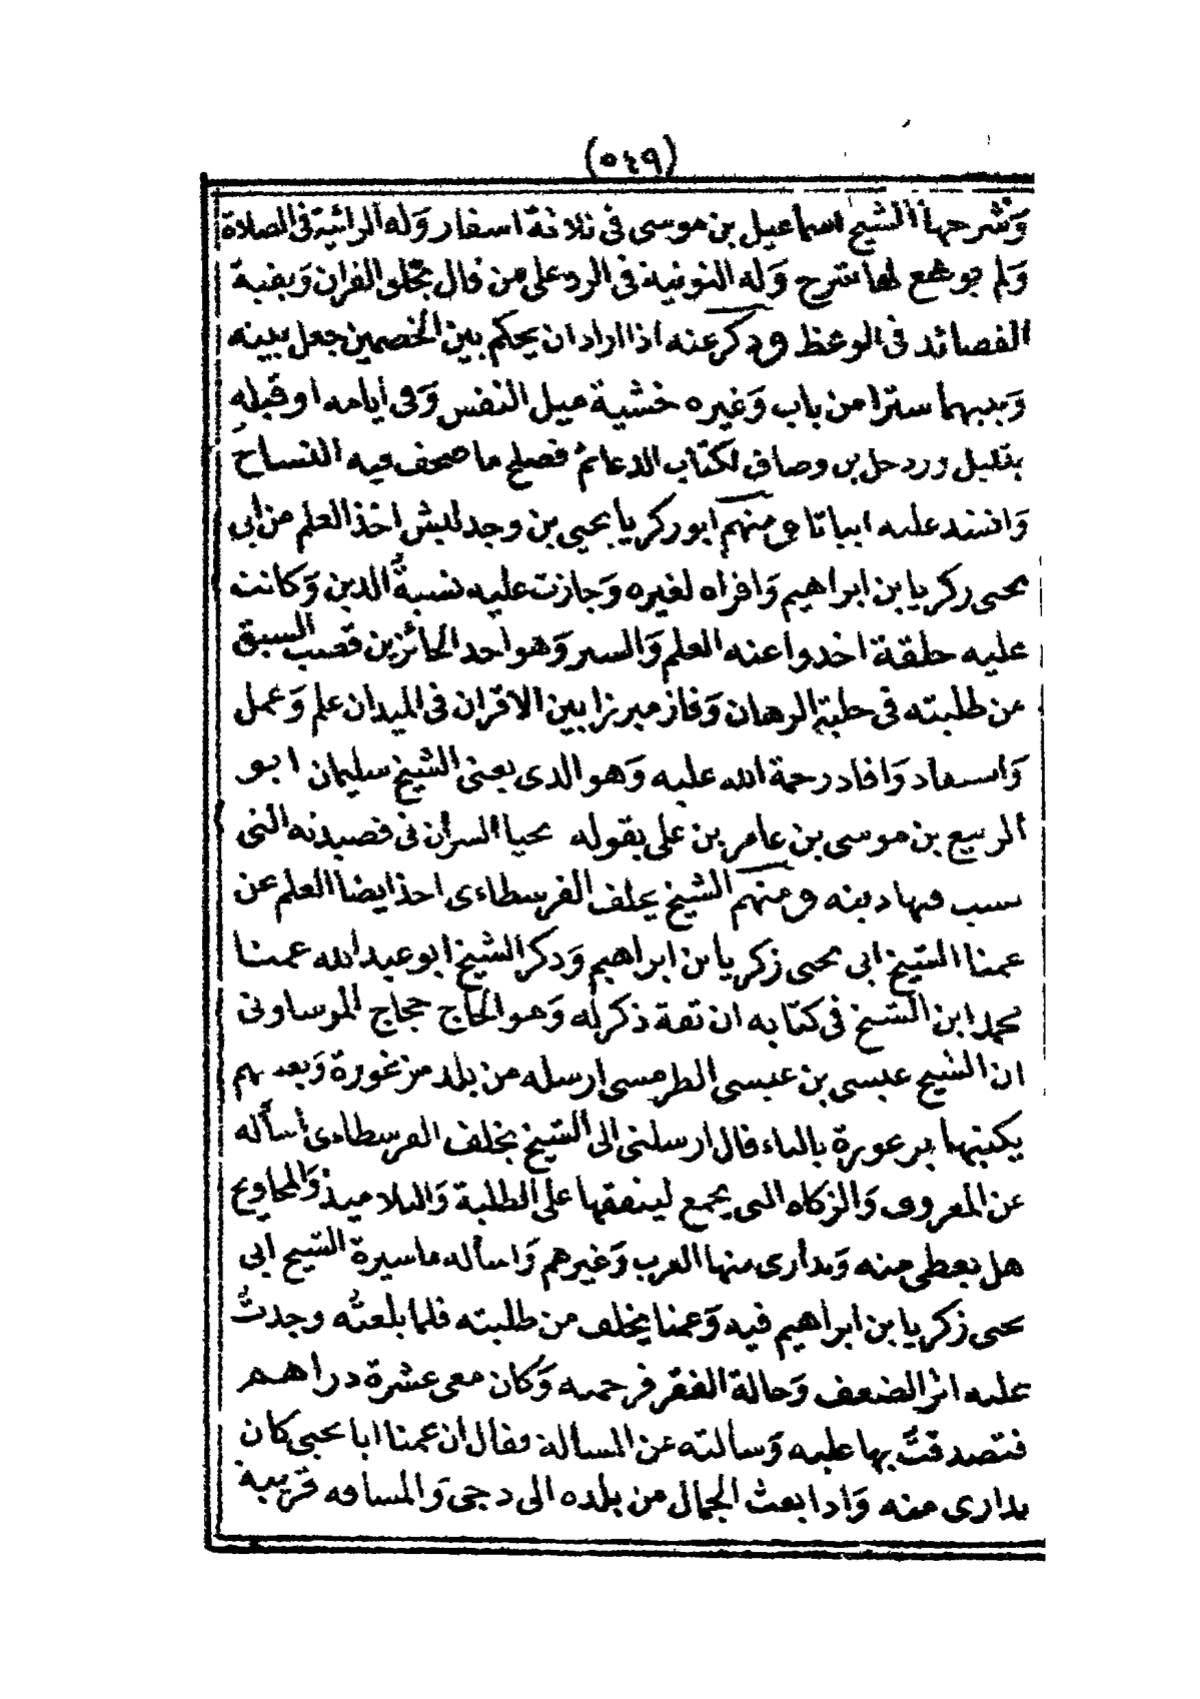 (٥٤٩)
وَشرحها الشيخ اسماعيل بن موسى فى ثلاثة اسفار وَله الرائية فى الصلاة
وَلم يوضع لها شرح وَله النونية فى الرد على من قال بخلق القران وَبقية
القصائد فى الوعظ وذكر عنه اذا اراد ان يحكم بين الخصمين جعل بينه
وَبينهما سترا من باب وَغيره خشية ميل النفس وَفى ايامه او قبله
بقليل ورد حل بن وصاف لكتاب الدعائم فصلح ما صحف فيه النساح
وَانشد عليه ابياتا ومنهم ابو زكريا يحيى بن وجدليش اخذ العلم من ابى
يحيى زكريا بن ابراهيم وَاقراه لغيره وَجازت عليه نسبة الدين وَكانت
عليه حلقة اخدوا عنه العلم وَالسير وَهو احد الحائزين قصب السبق
من طلبته فى حلبة الرهان وَفاز مبرزا بين الاقران فى الميدان علم وَعمل
وَاستفاد وَافاد رحمة الله عليه وَهو الدى يعنى الشيخ سليمان ابو
الربيع بن موسى بن عامر بن على بقوله يحيا السران فى قصيدته التى
نسب فيها دينه ومنهم الشيخ يخلف الفرسطاءى اخذ ايضا العلم عن
عمنا الشيخ ابى يحيى زكريا بن ابراهيم وَذكر الشيخ ابو عبد الله عمنا
محمد ابن الشيخ فى كتابه ان ثقة ذكر له وَهو الحاج حجاج الموساونى
ان الشيخ عيسى بن عيسى الطرميسى ارسله من بلد مزغورة وَبعضهم
يكتبها برعورة بالباء قال ارسلنى الى الشيخ يخلف الفرسطاءى أسأله
عن المعروف وَالزكاه التى يجمع لينفقها على الطلبة وَالتلاميذ وَالمحاويج
هل يعطى منه وَيدارى منها العرب وَغيرهم وَاسأله ما سيرة الشيخ ابى
يحيى زكريا بن ابراهيم فيه وَعمنا يخلف من طلبته فلما بلغته وجدتُ
عليه اثر الضعف وَحالة الفقر فرحمته وَكان معى عشرة دراهم
فتصدقت بها عليه وَسالته عن المسالة فقال ان عمنا ابا يحيى كان
يدارى منه وَادا بعث الجمال من بلده الى دجى وَالمسافه قريبة